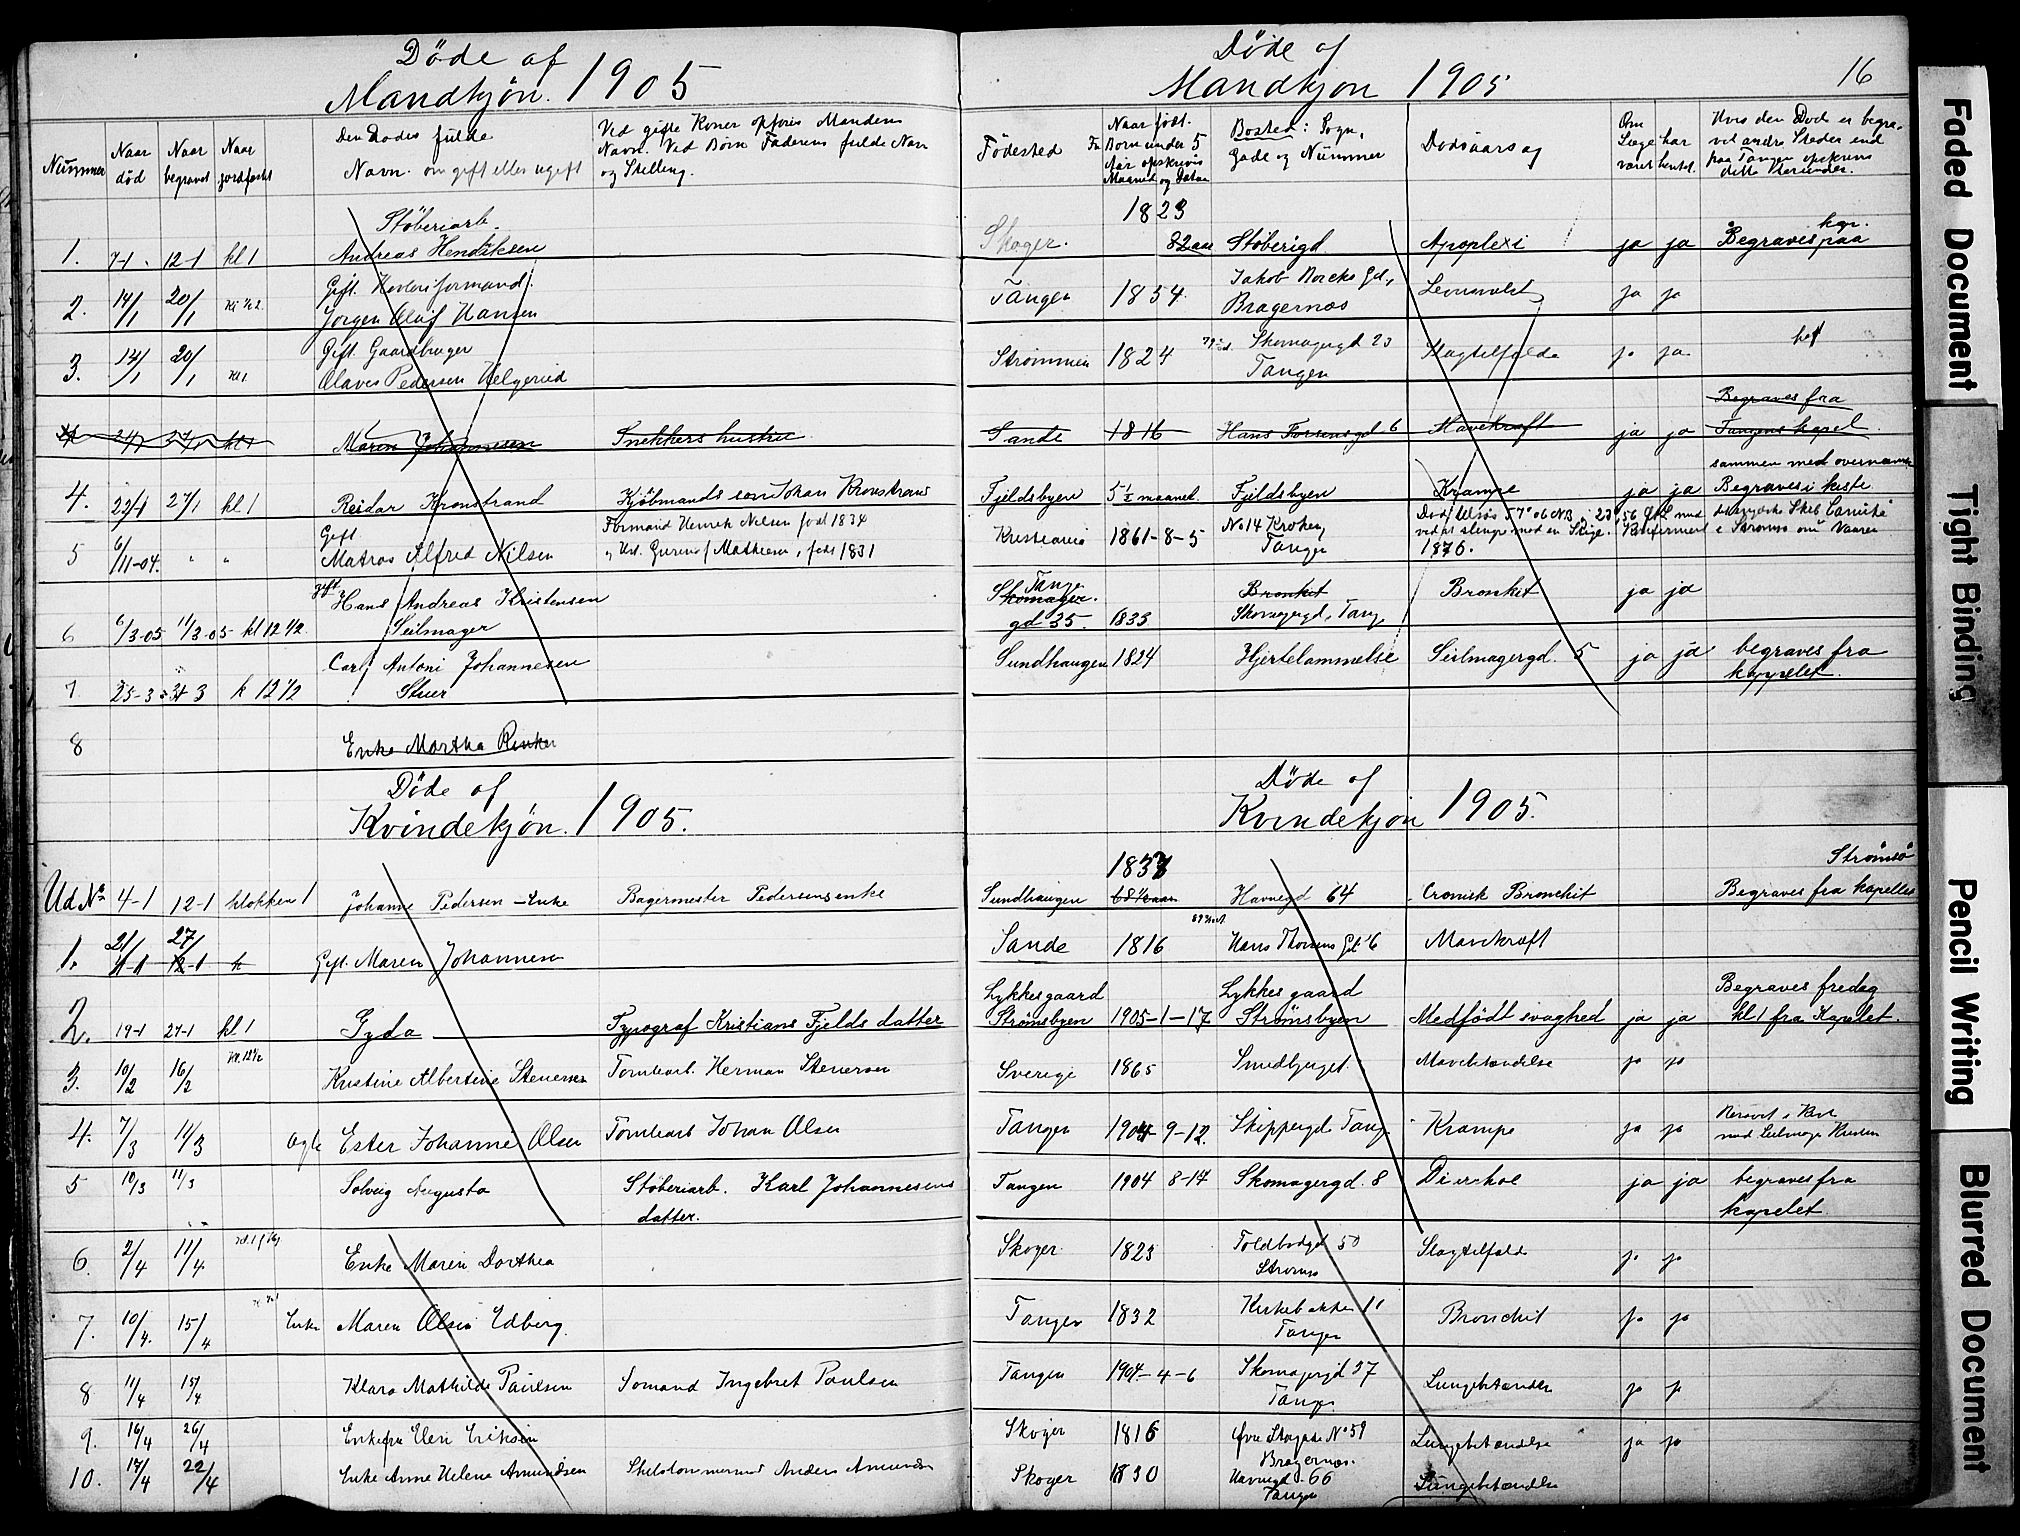 Døde af
Mandkjøn. 1905
Døde af
Mandkjøn 1905
16
Nummer
Naar død
Naar begravet
Naar jordfæstet
Den Dødes fulde Navn. om gift eller ugift
Ved gifte Koner opføres Mandens Navn. Ved Børn Faderens fulde Navn og Stilling.
Fødested
Naar født. For Børn under 5 Aar opskrives Maaned og Datum
Bosted: Sogn, Gade og Nummer
Dødsaarsag
Om Læge har været hentet.
Hvis den Døde er begravet andre Steder end paa Tangen opskrives dette herunder.
1. 7-1. 12-1 kl 1 Støberiarb. Andreas Hendriksen Skoger. 1823 82 aar Støberigd Apoplexi ja ja Begraves paa kgr.
2. 14/1 20/1 Gift. Høvleriformand. Jørgen Olaf Hansen Tangen 1854. Jakob Borcks Gd, Bragernæs ja ja
3. 14/1 20/1 Kl 1 Gift Gaardbruger Olaves Pedersen Helgerud Strømmen 1824 Skomagergd 23 Tangen Slagtilfælde ja ja
4 24/1 27/1 kl 1 Maren Johannesen Snekkers hustru Sande 1816 Hans gd 6 Mavekræft ja ja Begraves fra Tangens kapel
4. 22/1 27/1 kl 1 Reidar Kronstrand Kjøbmands søn Johan Kronstrand Fjeldsbyen 5 1/2 maaned. Fjeldsbyen Krampe ja ja sammen med Begraves i kiste
5 6/11-04. " " Gift Matros Alfred Nilsen Formand Henrik Nilsen født 1834 og Mathisen, født 1831 Kristiania 1861-8-5 No 14 Kroken Tangen Død 57° 06 NB, 23°,56 ved at med en Konfirmeret i Strømsø om Vaaren 1876.
6 6/3-05 11/3-05 kl 12 1/2. gift Hans Andreas Kristensen Seilmager Tangen Skomager. gd 35. 1833 Bronket Skomagergd, Tang, Bronket ja ja
7 25-3 31 3 k 12 1/2 Carl Antoni Johannesen Stuer Sundhaugen 1824 Hjertelammelse Seilmagergd. 5 ja ja begraves fra kappelet.
8 Enke Martha Rinker
Døde af
Kvindekjøn. 1905.
Døde af
Kvindekjøn 1905.
Ud No 4-1 12-1 klokken 1 Johanne Pedersen - Enke Bagermester Pedersens enke Sundhaugen 1837 68 1/2 aar Havnegd 64 Cronisk Bronchit Strømsø Begraves fra kapellet
1. 21/1 11-1 27/1 12-1 k Gift. Maren Johannesen Sande 1816 Hans Gd 6 Mavekræft
2. 19-1 27-1 kl 1 Gyda Typograf Kristians Fjelds datter Lykkesgaard Strømsbyen 1905-1-17 Lykkesgaard Strømsbyen Medfødt svaghed ja ja Begraves fredag kl 1 fra Kapelet.
3. 10/2 16/2 Kl. 12 1/2 Kristine Albertine Stenersen Tomtearb. Herman Stenersen Sverige 1865 Smedbjerget. Mavebetændelse ja ja
4. 7/3 11/3 Ester Johanne Olsen Tomtearb Johan Olsen Tangen 1904-9-12. Skippergd Tang Krampe ja ja
5 10/3 11/3 Solveig Augusta Støberiarb. Karl Johannesens datter. Tangen 1904 8-17 Skomagergd. 8 ja ja begraves fra kapelet
6. 2/4 11/4 Enke Maren Dorthea Skoger 1823 Toldbodgd 50 Strømsø Slagtilfælde ja ja
7. 10/4. 15/4 Enke Maren Olsen Edberg. Tangen 1832 Kirkebakken 11 Tangen Bronchit ja ja
8 11/4 15/4 Klara Mathilde Paulsen Sømand Ingebret Paulsen Tangen 1904-4-6 Skomagergd 37 Tangen Lungebetændelse ja ja
9. 16/4 26/4 Enkefru Elen Eriksen Skoger 1816 Øvre Storgade No 59 Bragernæs. Lungebetændelse ja ja
10. 17/4 22/4 Enke Anne Helene Amundsen Skibstømmermand Anders Amundsen Skoger 1830 Havnegd 66 Tangen Lungebetændelse
Faded Document
Tight Binding
Pencil Writing
Blurred Document